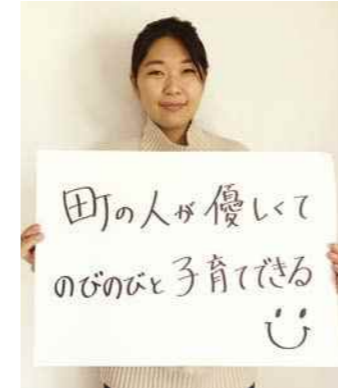 町の人が優しくて
のびのびと子育てできる